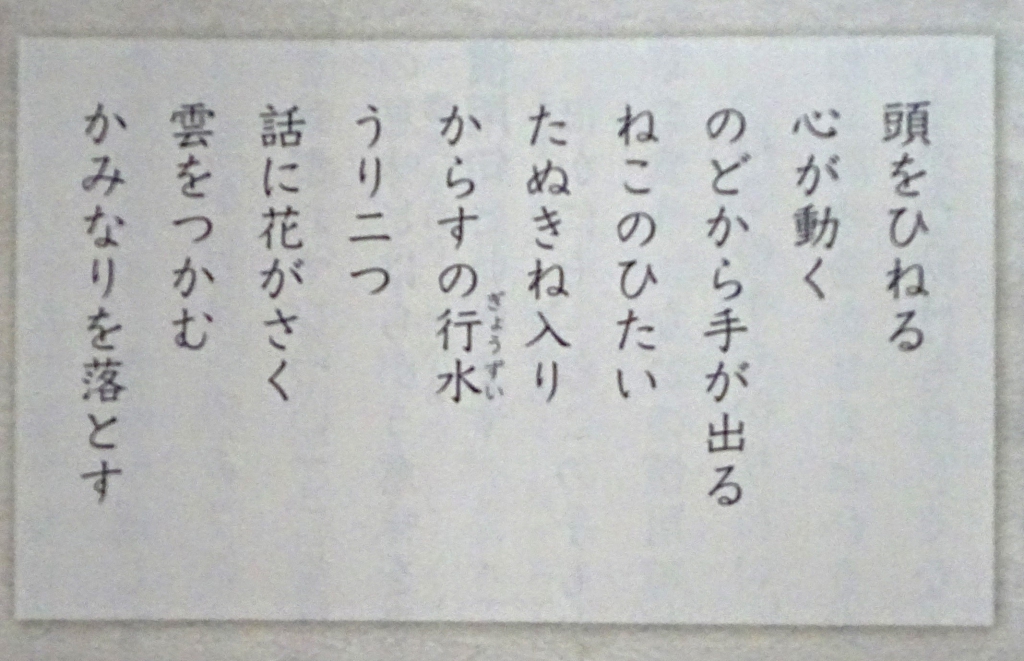 頭をひねる
心が動く
のどから手が出る
ねこのひたい
たぬきね入り
からすの行水
ぎょうずい
うり二つ
話に花がさく
雲をつかむ
かみなりを落とす